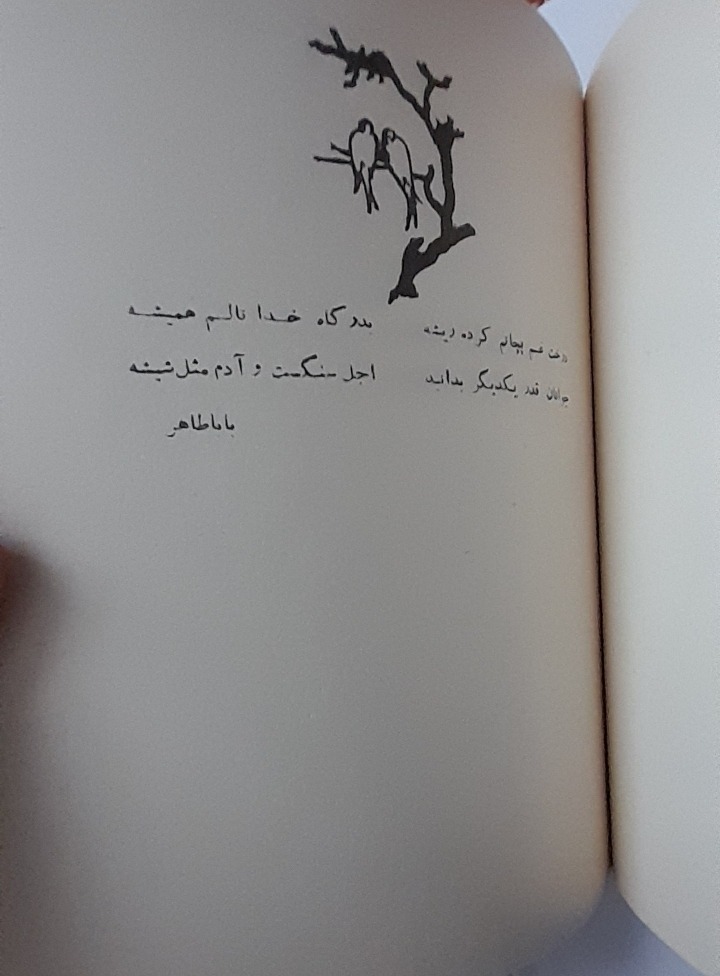 درخت غم بجانم کرده ریشه بدرگاه خدا نالم همیشه
جوانان قدر یکدیگر بدانید اجل سنگست و آدم مثل شیشه
باباطاهر